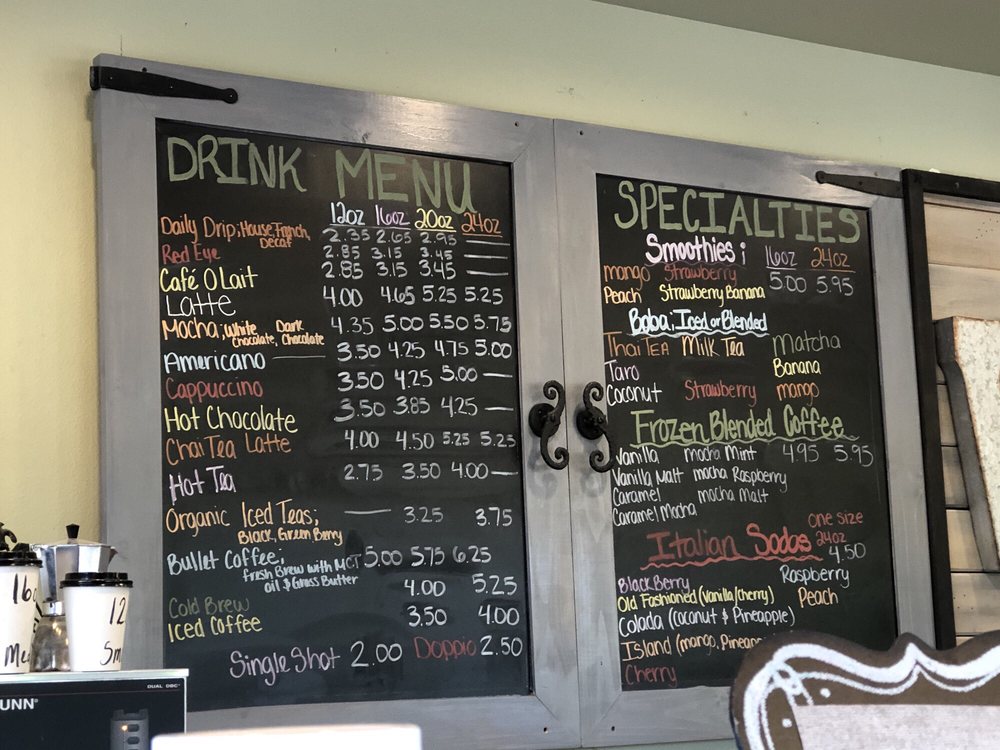 DRINK MENU
12oz 16oz 20oz 24oz
Daily Drip; House, French, Decaf 2.35 2.65 2.95 —
Red Eye 2.85 3.15 3.45 —
Café O Lait 2.85 3.15 3.45 —
Latte 4.00 4.65 5.25 5.25
Mocha, White Chocolate, Dark Chocolate 4.35 5.00 5.50 5.75
Americano — 3.50 4.25 4.75 5.00
Cappuccino 3.50 4.25 5.00 —
Hot Chocolate 3.50 3.85 4.25 —
Chai Tea Latte 4.00 4.50 5.25 5.25
Hot Tea 2.75 3.50 4.00 —
Organic Iced Teas; — 3.25 3.75
Black, Green Berry
Bullet Coffee; 5.00 5.75 6.25
fresh Brew with MCT
oil & Grass Butter
Cold Brew 4.00 5.25
Iced Coffee 3.50 4.00
Single Shot 2.00 Doppio 2.50
SPECIALTIES
Smoothies; 16oz 24oz
mango Strawberry 5.00 5.95
Peach Strawberry Banana
Boba, Iced or Blended
Thai TEA Milk Tea Matcha
Taro Banana
Coconut Strawberry mango
Frozen Blended Coffee
Vanilla mocha Mint 4.95 5.95
Vanilla Malt mocha Raspberry
Caramel mocha malt
Caramel Mocha
Italian Sodas one size
24oz
4.50
BlackBerry Raspberry
Old Fashioned (Vanilla/Cherry) Peach
Colada (coconut & Pineapple)
Island (mango,
Cherry
16
12
Sm
UNN®
DUAL DBC®